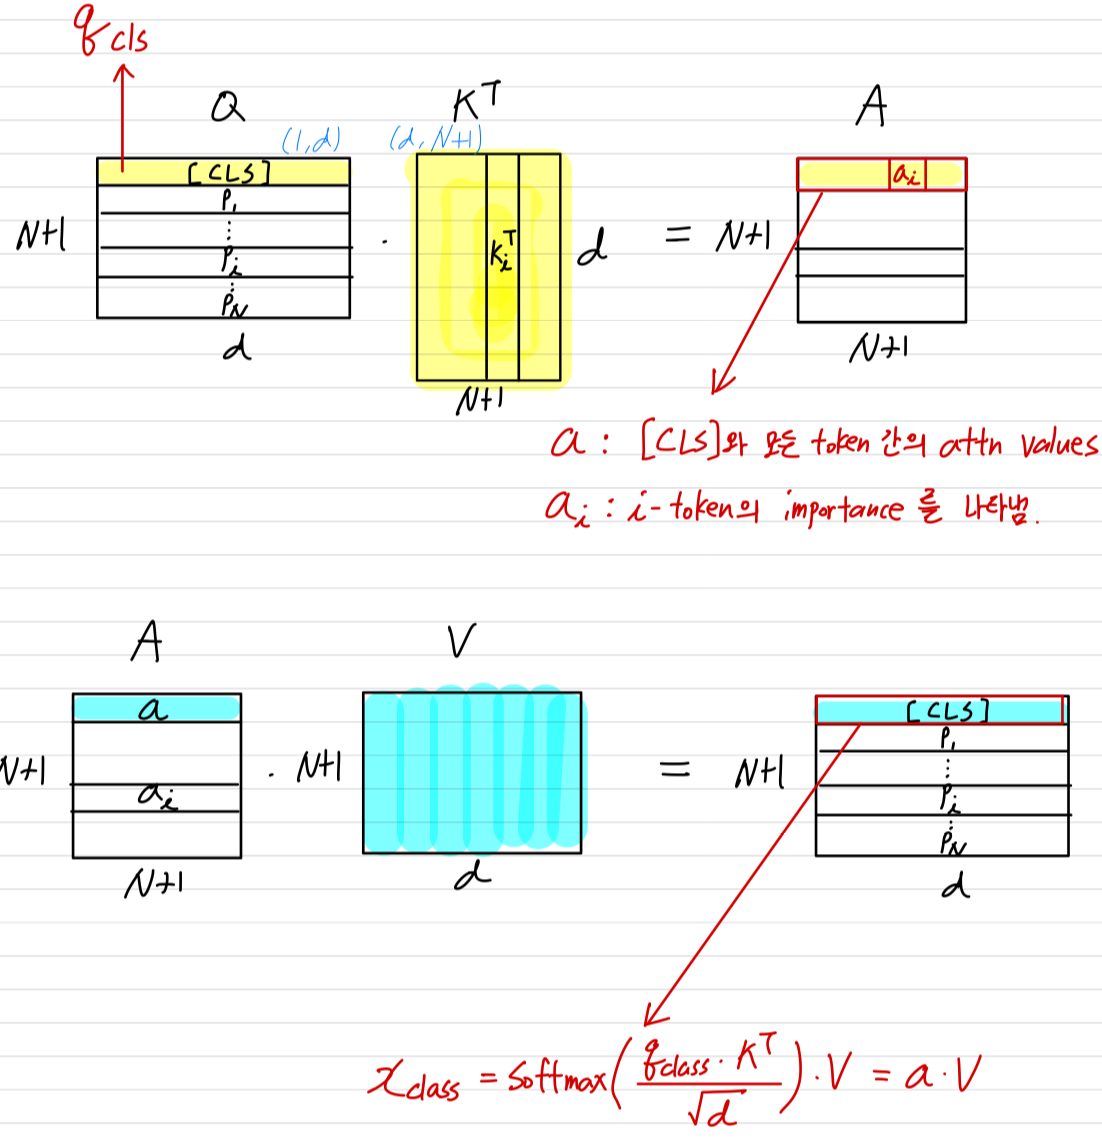 q_cls
Q K^T A
(1,d) (d,N+1)
[CLS] a_i
P_1
⋮
N+1 P_i · K_i^T d = N+1
⋮
P_N
d N+1 N+1
a : [CLS]와 모든 token 간의 attn values
a_i : i-token의 importance를 나타냄.
A V
a [CLS]
P_1
⋮
N+1 · N+1 = N+1
a_i P_i
⋮
P_N
N+1 d d
x_class = Softmax(q_class · K^T / √d) · V = a · V